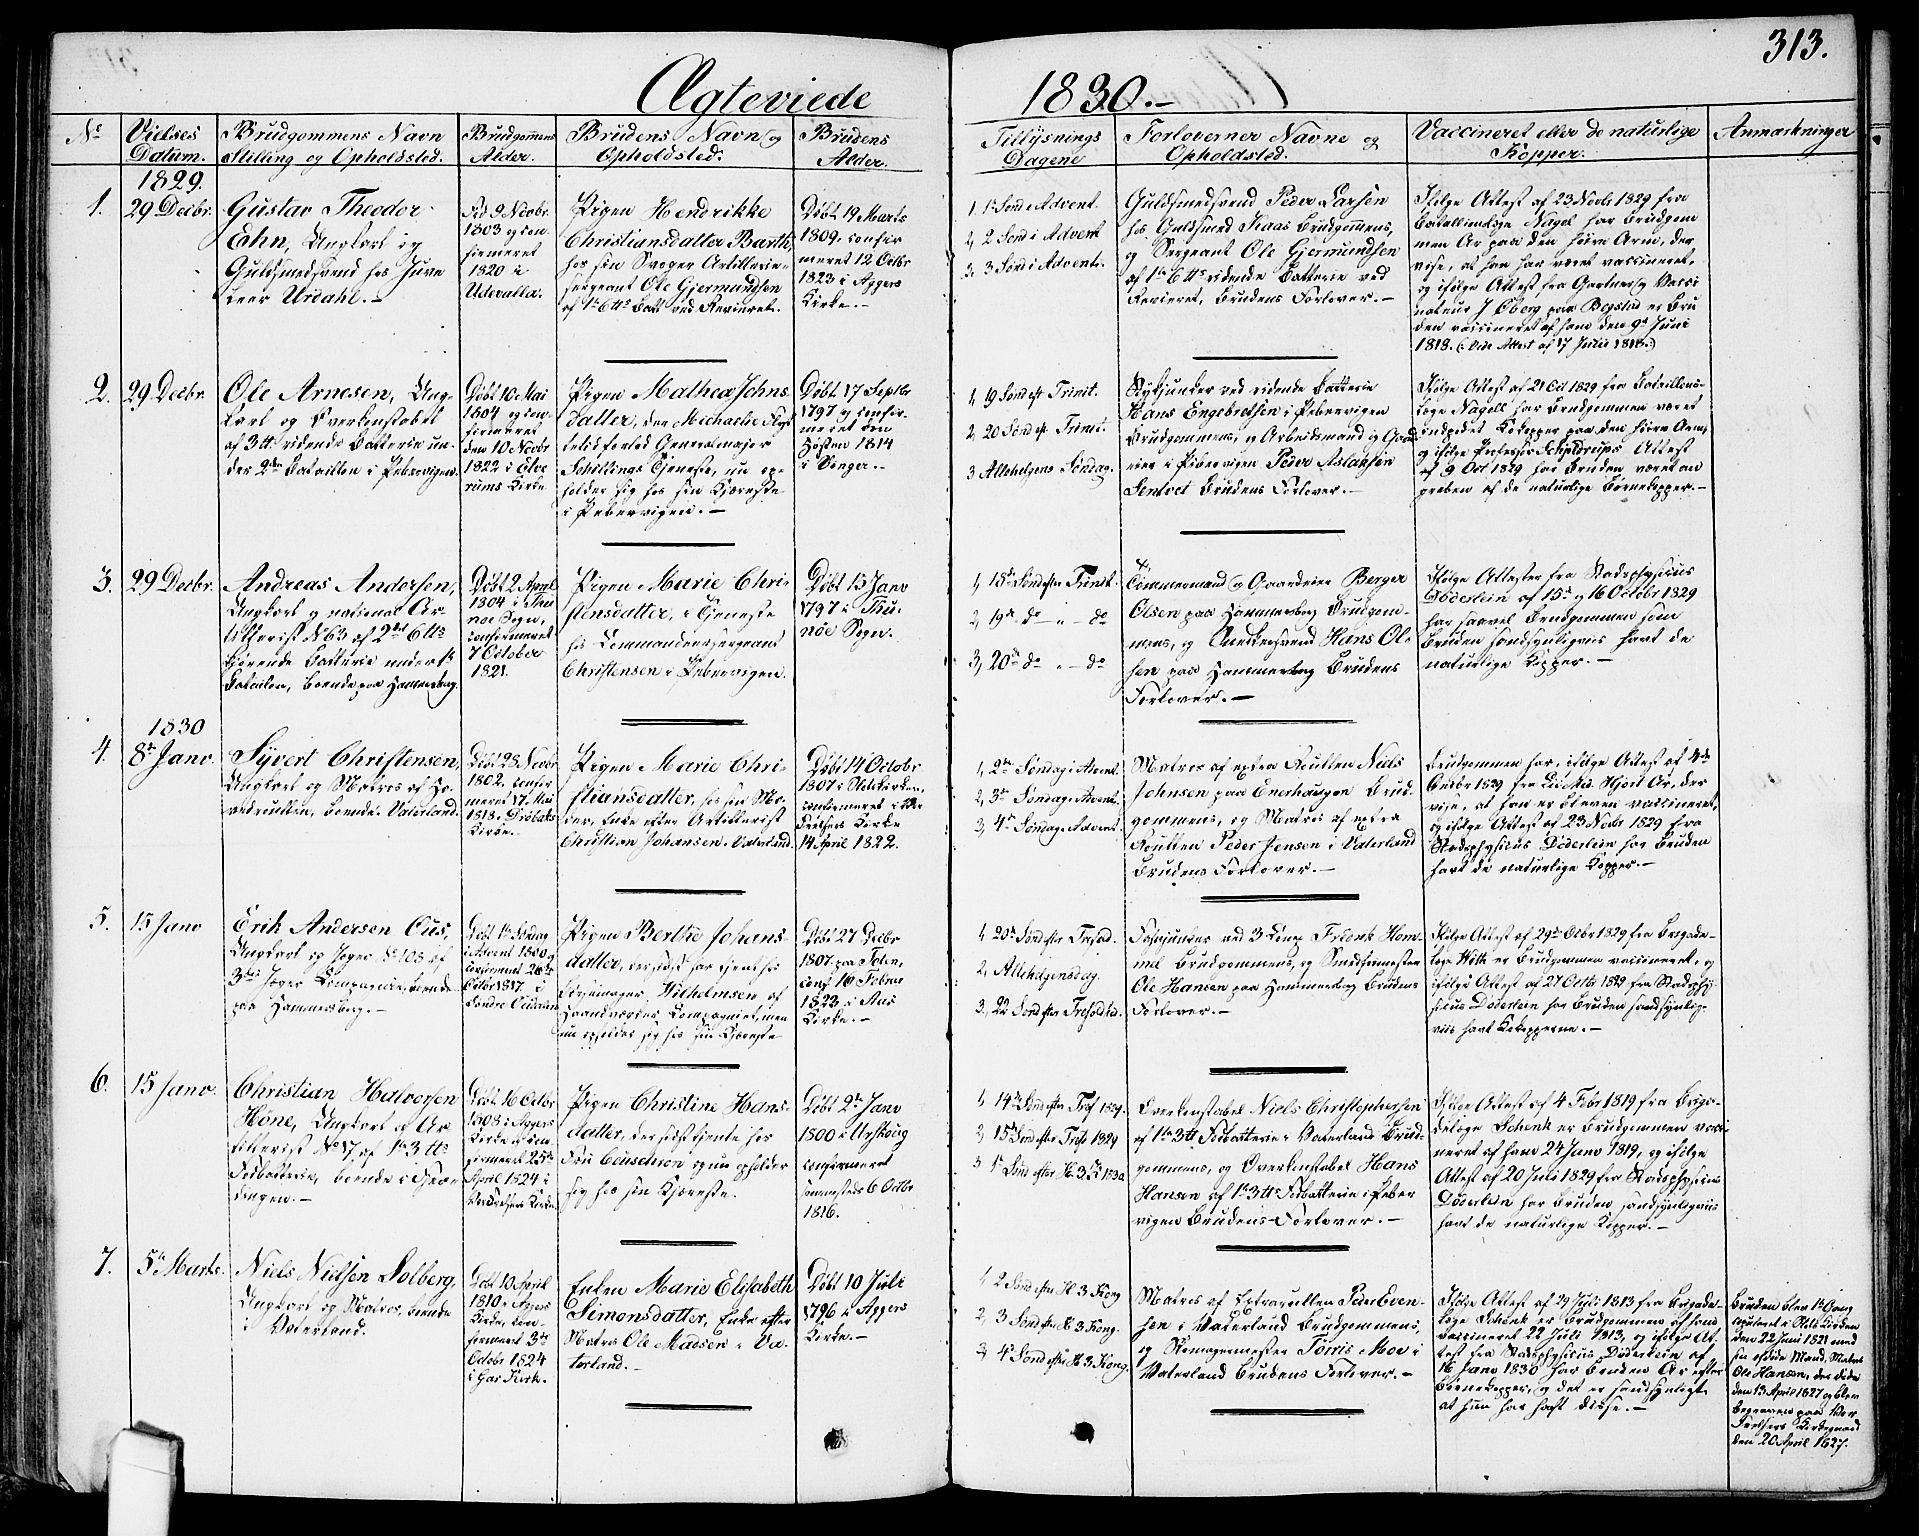 313.
Ægteviede 1830.-
No
Vielses Datum.
Brudgommens Navn Stilling og Opholdsted.
Brudgommens Alder.
Brudens Navn og Opholdsted.
Brudens Alder.
Tillysnings Dagene
Forloverner Navne og Opholdsted.
Vaccineret eller de naturlige Kopper.
Anmærkninger
1829.
1.
29 Decbr.
Gustav Theodor
Ehn, Ungkarl og
Guldsmedsvend hos Juve
leer Urdahl.-
Fød 9 Novbr.
1803 og con-
firmeret
1820 i
Udevalla.
Pigen Hendrikke
Christiansdatter Barth,
hos sin Svoger Artillerie-
sergeant Ole Gjermundsen
af 1ste 6 ttes Batt ved Revieret.
Døbt 19 Marts
1809, confir
meret 12 Octbr
1823 i Aggers
Kirke.-
1. 1 Sønd i Advent.
2, 2 Sønd i Advent
3. 3 Sønd i Advent.
Guldsmedsvend Peder Larsen
hos Guldsmed Kaas Brudgommens,
og Sergeant Ole Gjermundsen
af 1ste 6 ttes ridende Batterie ved
Revieret, Brudens Forlover.-
Ifølge Attest af 23 Novbr 1829 fra
Batallionslæge Nagel har Brudgom
men Ar paa den høire Arm, der
vise, at han har været vaccineret,
og ifølge Attest fra Gartner og Vacci
nateur J Öberg paa Bogstad er Bru
den vaccineret af ham den 9de Juni
1818. (: Vide Attest af 17 Junii 1818.)
2.
29 Decbr.
Ole Arnesen, Ung-
karl og Overkonstabel
af 3 tt ridende Batterie un-
der 2den Bataillon i Pebervigen
Døbt 10 Mai
1804 og con-
firmeret
den 10 Novbr
1822 i Elve
rums Kirke
Pigen Mathea Johns
datter, den Michaelie Flyt
tetid forlod Generalmajor
Schillings Tjeneste, nu op-
holder sig hos sin Kjæreste
i Pebervigen.-
Døbt 17 Septbr
1797 og confir-
meret den
Høsten 1814
i Vinger.-
1, 19 Sønd eft Trinit.
2, 20 Sønd eft Trinit.
3 Allehelgens Søndag.
Hans Engebretsen i Pebervigen
Brudgommens, og Arbeidsmand og Gaard
eier i Pebervigen Peder Aslaksen
Sentvet Brudens Forlover.-
Ifølge Attest af 21 Oct 1829 fra Batallions-
læge Nagell har Brudgommen været
indpodet Kokopper paa den høire Arm,
og ifølge Professor Schjelderups Attest
af 9 Oct 1829 har Bruden været an
greben af de naturlige Børnekopper.-
3.
29 Decbr.
Andreas Andersen,
Ungkarl og national Ar-
tillerist N 63 af 2det 6 tts
kjørende Batterie under 1ste
Batailon, boende paa Hammersborg.
Døbt 2 April
1804 i Thu
nøe Sogn,
confirmeret
7 October
1821.
Pigen Marie Chri-
stensdatter, i Tjeneste
hos Commandeersergeant
Christensen i Pebervigen.
Døbt 15 Janv
1797 i Thu-
nöe Sogn.
1, 18de Sønd efter Trinit.
2, 19de do " - do
3, 20de do " - do
Tømmermand og Gaardeier Berger
Olsen paa Hammersborg Brudgom-
mens, og Snedkersvend Hans Ol-
sen paa Hammersborg Brudens
Forlover.-
Ifølge Attester fra Stadsphysicus
Döderlein af 15de og 16 Octobr 1829
har saavel Brudgommen som
Bruden sandsynligviis havt de
naturlige Kopper.-
1830
4.
8de Janv.
Syvert Christensen,
Ungkarl og Matros af Ho-
vedrullen, boende i Vaterland.
Døbt 28 Novbr
1802, confir
meret 17 Mai
1818 i Drøbaks
Kirke.-
Pigen Marie Chri-
stiansdatter, hos sin Mo-
der, Enke efter Artillerist
Christian Johansen i Vaterland.
Døbt 14 Octobr
1807 i Slotskirken,
confirmeret i Vor
Frelsers Kirke
14 April 1822.
1, 2den Søndag i Advent.
2, 3die Søndag i Advent.
3, 4de Søndag i Advent.
Matros af extra Roullen Niels
Johnsen paa Enerhaugen Brud-
gommens, og Matros af extra
Roullen Peder Jensen i Vaterland
Brudens Forlover.-
Brudgommen har, ifølge Attest af 4de
vise, at han er bleven vaccineret,
og ifølge Attest af 23 Novbr 1829 fra
Stadsphysicus Döderlein har Bruden
havt de naturlige Kopper.-
5.
15 Janv
Erik Andersen Ous,
Ungkarl og Jæger No 108 af
3die Jæger Compagnie, boende
paa Hammersborg.-
Døbt 1ste Søndag
i Advent 1800 og
confirmeret
Octbr 1817 i
Søndre Oudalen
Pigen Berthe Johans-
datter, der sidst har tjent hos
Wilhelmsen af
Haandværker Compagniet, men
nu opholder sig hos sin Kjæreste
Døbt 27 Decbr
1807 paa Toten,
conf 16 Febru
1823 i Aas
Kirke.-
1. 20de Sønd efter Trefold.
2, Allehelgensdag.
3, 22 Sønd efter Trefoldh.
ved 3 Comp Fredrik Hom-
mel Brudgommens, og Smedsvendsen
Ole Hansen paa Hammersborg Brudens
Forlover.-
Ifølge Attest af 29de Octbr 1829 fra Brigade-
læge With er Brudgommen vaccineret, og
ifølge Attest af 27 Octb 1829 fra Stadsphy-
sicus Döderlein har Bruden sandsynlig-
viis havt Kokopperne.-
6.
15 Janv.
Christian Halvorsen
Höne, Ungkarl og Ar-
tillerist No 17 af 1ste 3 tts
Fodbatterie, boende i Græn-
dsen.-
Døbt 16 Octbr
1808 i Aggers
Kirke og con-
firmeret 25de
April 1824 i
Vor Frelsers Kirke.
Pigen Christine Hans-
datter, der sidst tjente hos
Frue og nu opholder
sig hos sin Kjæreste.
Døbt 2den Janv
1800 i Urskoug
confirmeret
sammesteds 6 Octbr
1816.
1, 14de Sønd efter Tref 1829.
2, 15de Sønd efter Tref 1829
3 1ste Sønd efter H. 3 K. 1830
Overkonstabel Niels Christophersen
af 1ste 3 tt Fodbatterie i Vaterland Brud-
gommens, og Overkonstabel Hans
Hansen af 1ste 3 tts Fodbatterie i Peber
vigen Brudens Forlover.-
Ifølge Attest af 4 Febr 1819 fra Briga-
delæge Schenk er Brudgommen vacci
neret af ham 24 Janv 1819, og ifølge
Attest af 20 Juni 1829 fra Stadsphysicus
Döderlein har Bruden sandsynligviis
havt de naturlige Kopper.-
7.
5te Marts.
Niels Nielsen Solberg,
Ungkarl og Matros, boende
i Vaterland.
Døbt 10 April
1810 i Aggers
Kirke, con-
firmeret 3die
Octobr 1824
i Garn. Kirk.
Enken Marie Elisabeth
Simonsdatter, Enke efter
Matros Ole Madsen i Va-
terland.-
Døbt 10 Juli
1796 i Aggers
Kirke.-
1, 2 Sønd efter H. 3 Kong
2, 3 Sønd efter H. 3 Kong.
3, 4 Sønd efter H. 3 Kong.
Matros af Extrarullen Peder Even-
sen i Vaterland Brudgommens,
og Skomagermester Torris Moe i
Vaterland Brudens Forlover.-
Ifølge Attest af 29 Juli 1813 fra Brigade-
læge Schenk er Brudgommen af ham
vaccineret 22 Juli 1813, og ifølge At-
test fra Stadsphysicus Döderlein af
16 Janv 1830 har Bruden Ar efter
Børnekopper, og det er sandsynligt
at hun har havt disse.-
Bruden blev 1ste Gang
copuleret i Slots Kirken
den 22 Juni 1821 med
sin afdøde Mand, Matros
Ole Hansen, der døde
den 13 April 1827 og blev
begraven paa Vor
Frelsers Kirkegaard
den 20 April 1827.